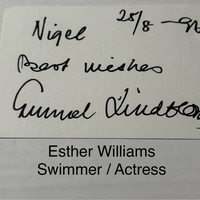 Nigel 25/8 -9
Best wishes
Gunnel Lindblom
Esther Williams
Swimmer / Actress